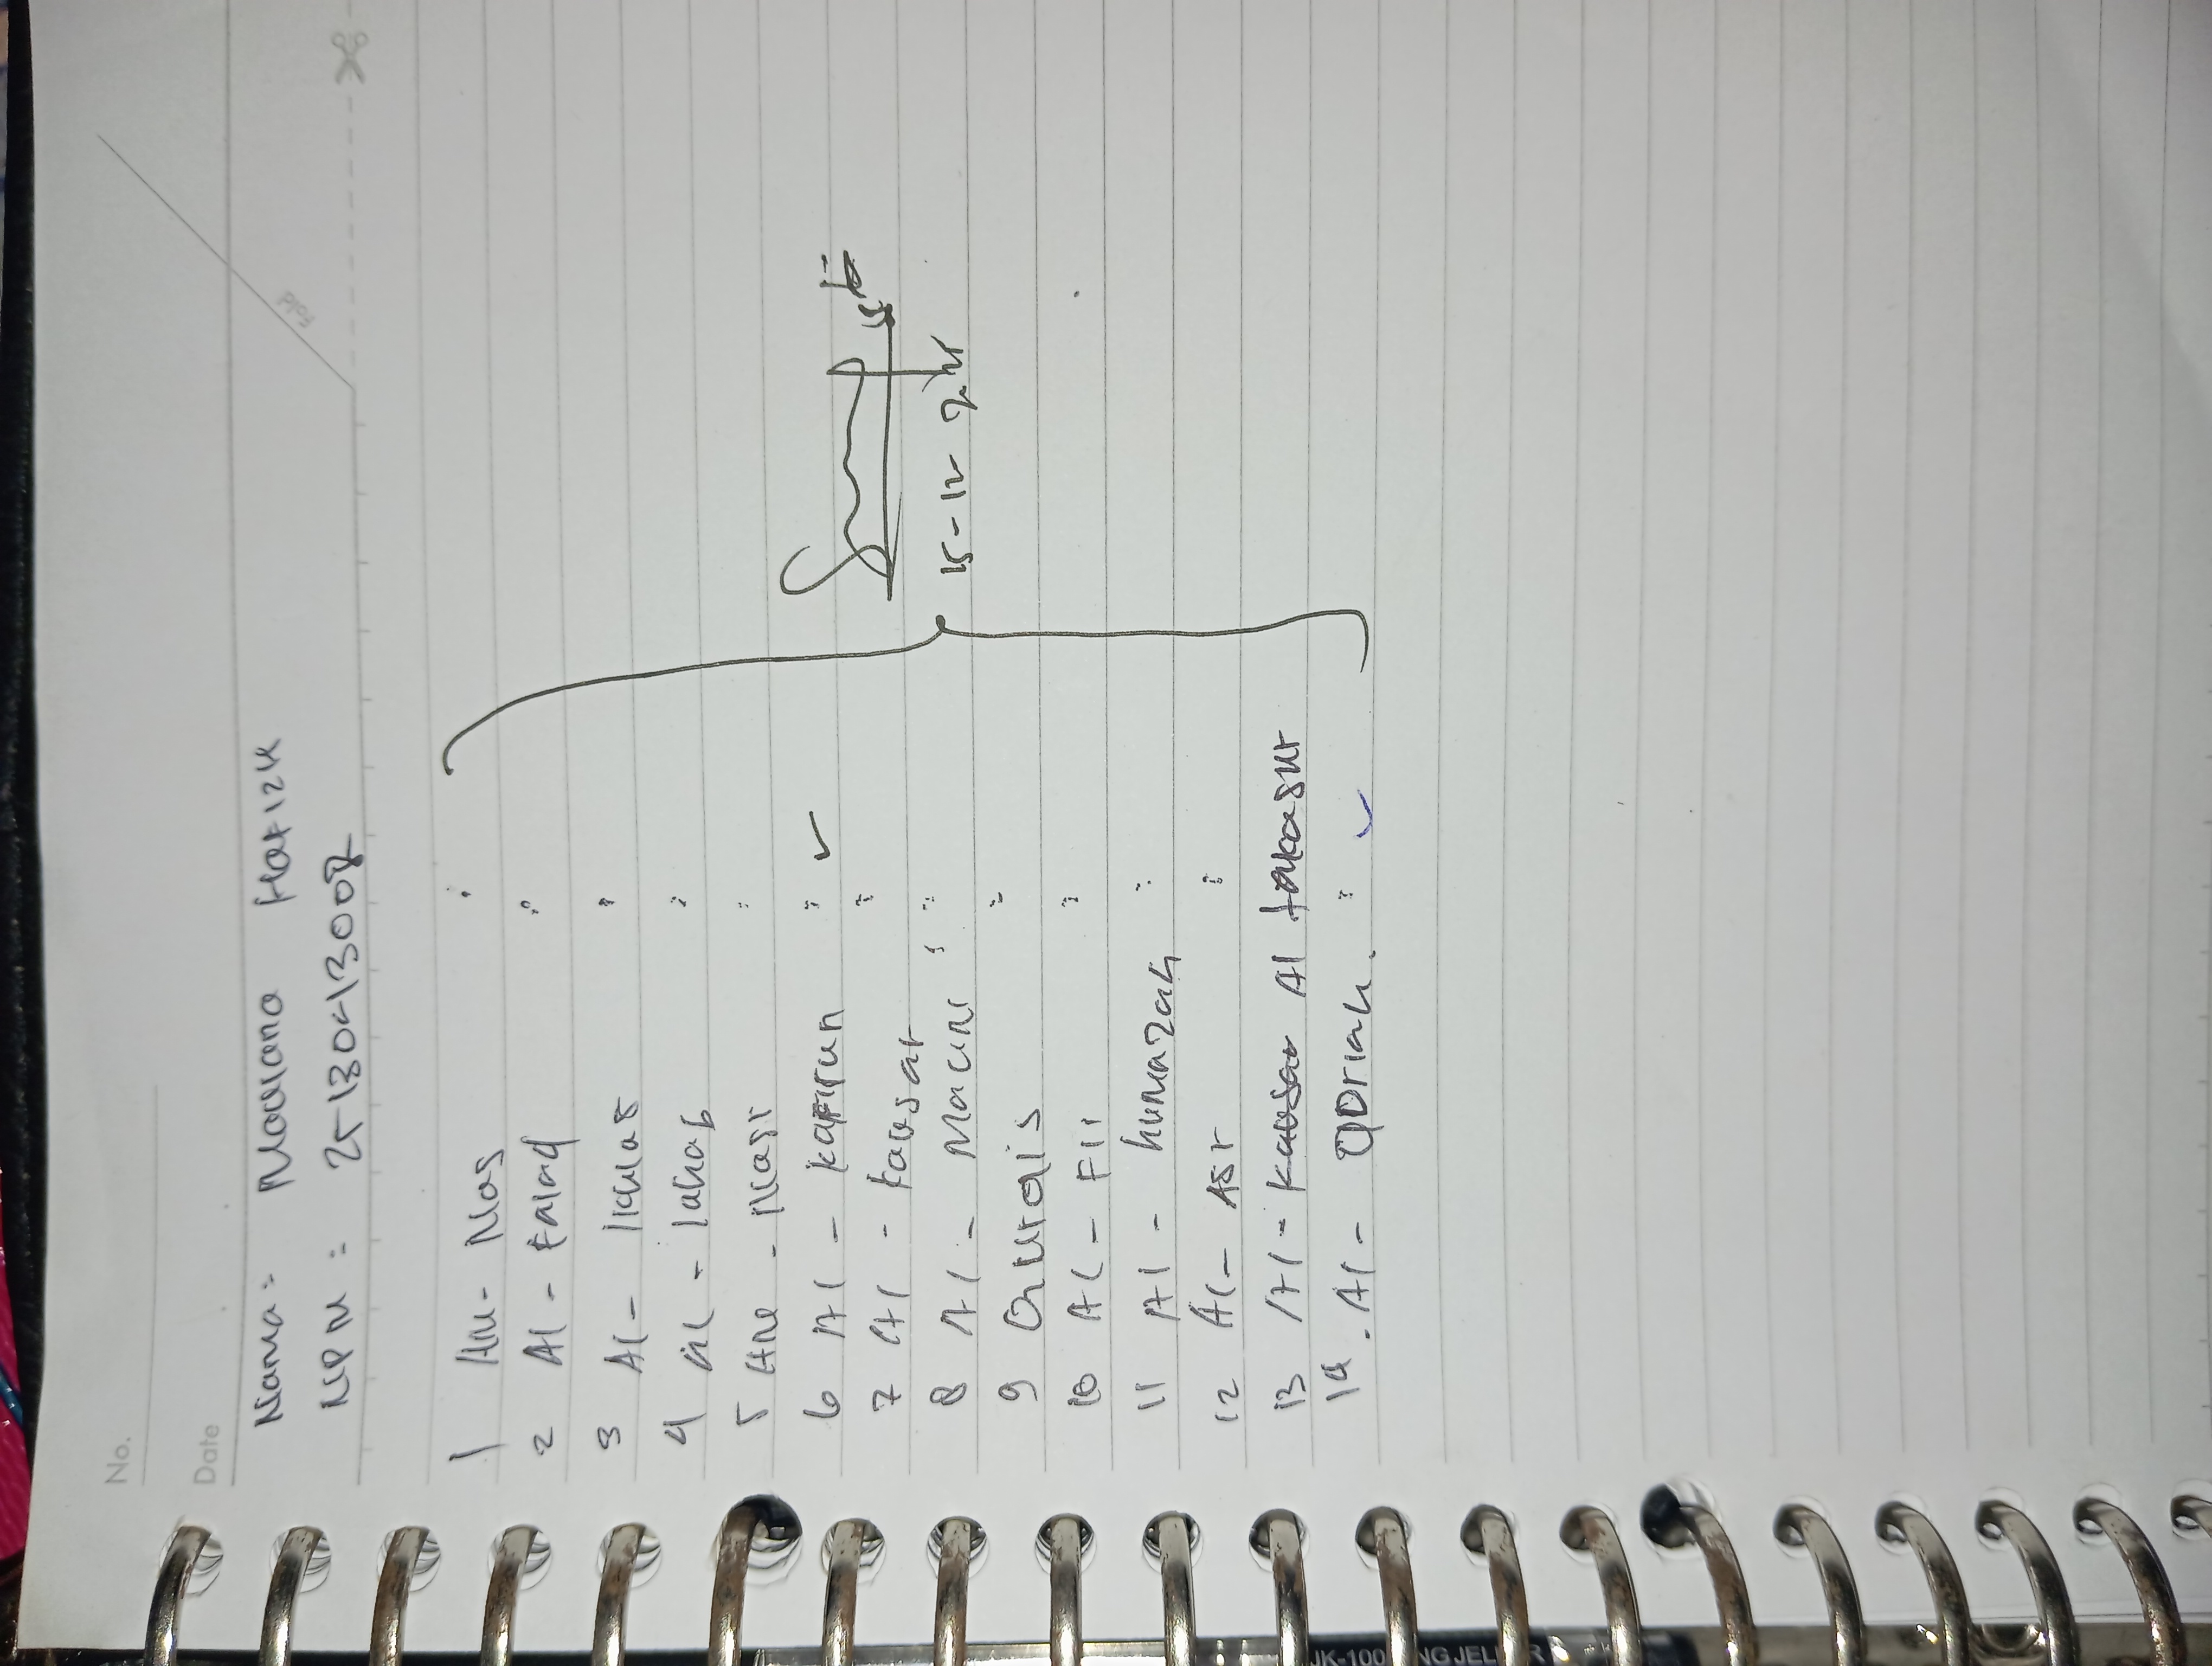 No.
Date
Fold
Nama = Maulana Hafizh
NPM : 2513013008
1 An - Nas :
2 Al - Falaq :
3 Al - Ikhlas :
4 Al - lahab :
5 Ane - Nasr :
6 Al - kafirun : ✓
7 Al - kausar :
8 Al - Macun : :
9 Qurais :
10 Al - Fil :
11 Al - humazah :
12 Al - Asr :
13 Al - kausar Al takasur
14. Al - QDriah. : ✓
15 - 12 -
JK-100